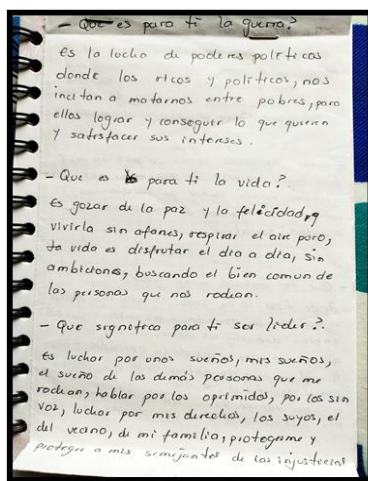 - Que es para ti la guerra?
Es la lucha de poderes políticos
donde los ricos y políticos, nos
incitan a matarnos entre pobres, para
ellos lograr y conseguir lo que quieren
y satisfacer sus intereses.
- Que es para ti la vida?
Es gozar de la paz y la felicidad,
vivirla sin afanes, respirar el aire puro,
la vida es disfrutar el dia a dia, sin
ambiciones, buscando el bien comun de
las personas que nos rodean.
- Que significa para ti ser lider?
Es luchar por unos sueños, mis sueños,
el sueño de las demás personas que me
rodean, hablar por los oprimidos, por los sin
voz, luchar por mis derechos, los suyos, el
del vecino, de mi familia, protegerme y
proteger a mis semejantes de las injusticias